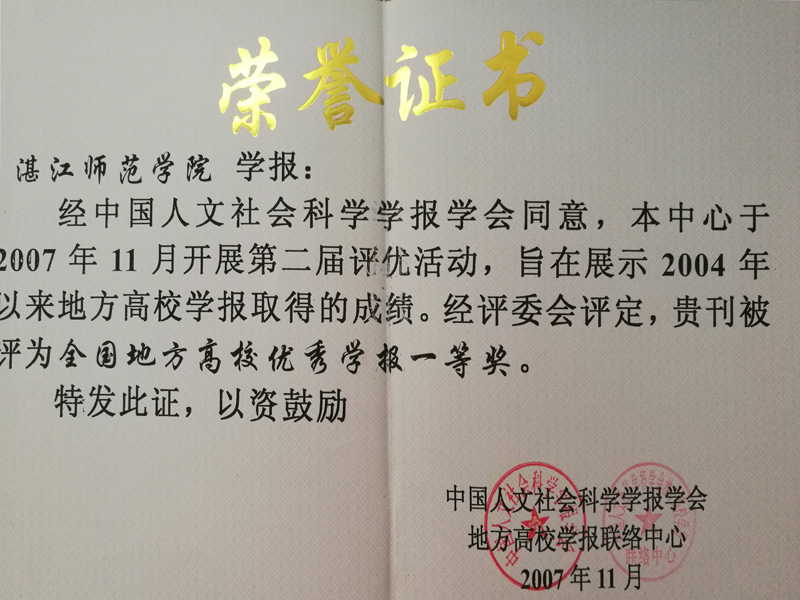 荣誉证书
湛江师范学院 学报：
经中国人文社会科学学报学会同意，本中心于
2007年11月开展第二届评优活动，旨在展示2004年
以来地方高校学报取得的成绩。经评委会评定，贵刊被
评为全国地方高校优秀学报一等奖。
特发此证，以资鼓励
中国人文社会科学学报学会
地方高校学报联络中心
2007年11月
联络中心